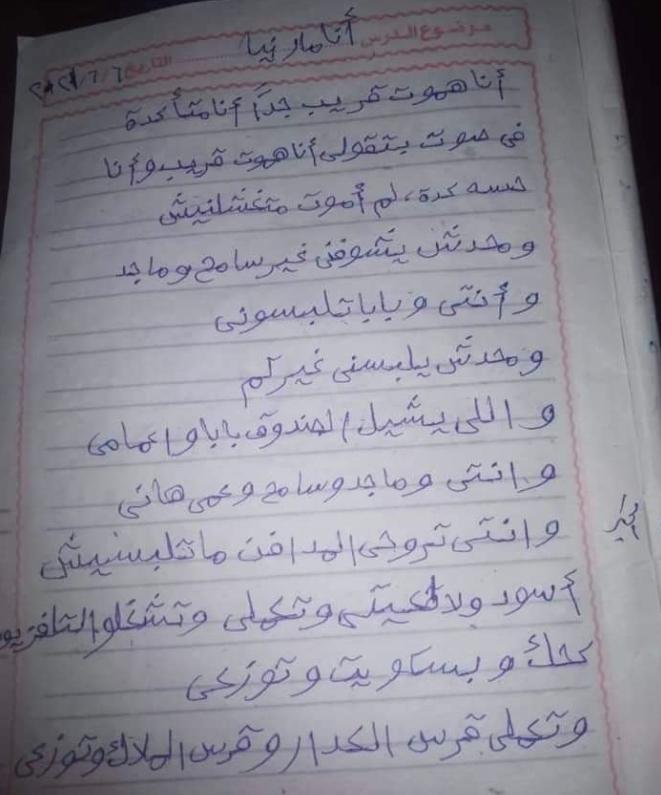 موضوع الدرس أنا مارنيا التاريخ ٢٠٢١/٦/٦
أنا هموت قريب جداً أنا متأكدة
فى صوت بتقولى أنا هموت قريب وأنا
حسه كدة، لم أموت متغسلنيش
ومحدش يشوفنى غير سامح وماجد
وأنتى وبابا تلبسونى
ومحدش يلبسنى غيركم
واللى يشيل الصندوق بابا واعمامى
وانتى وماجد وسامح وعمى هانى
وانتى تروحى المدافن ماتلبسيش
أسود ولا وتعملى وتشغلو التلفزيو
كحك وبسكويت وتوزعى
وتعملى قرس الكدار وقرس الملاك وتوزعى